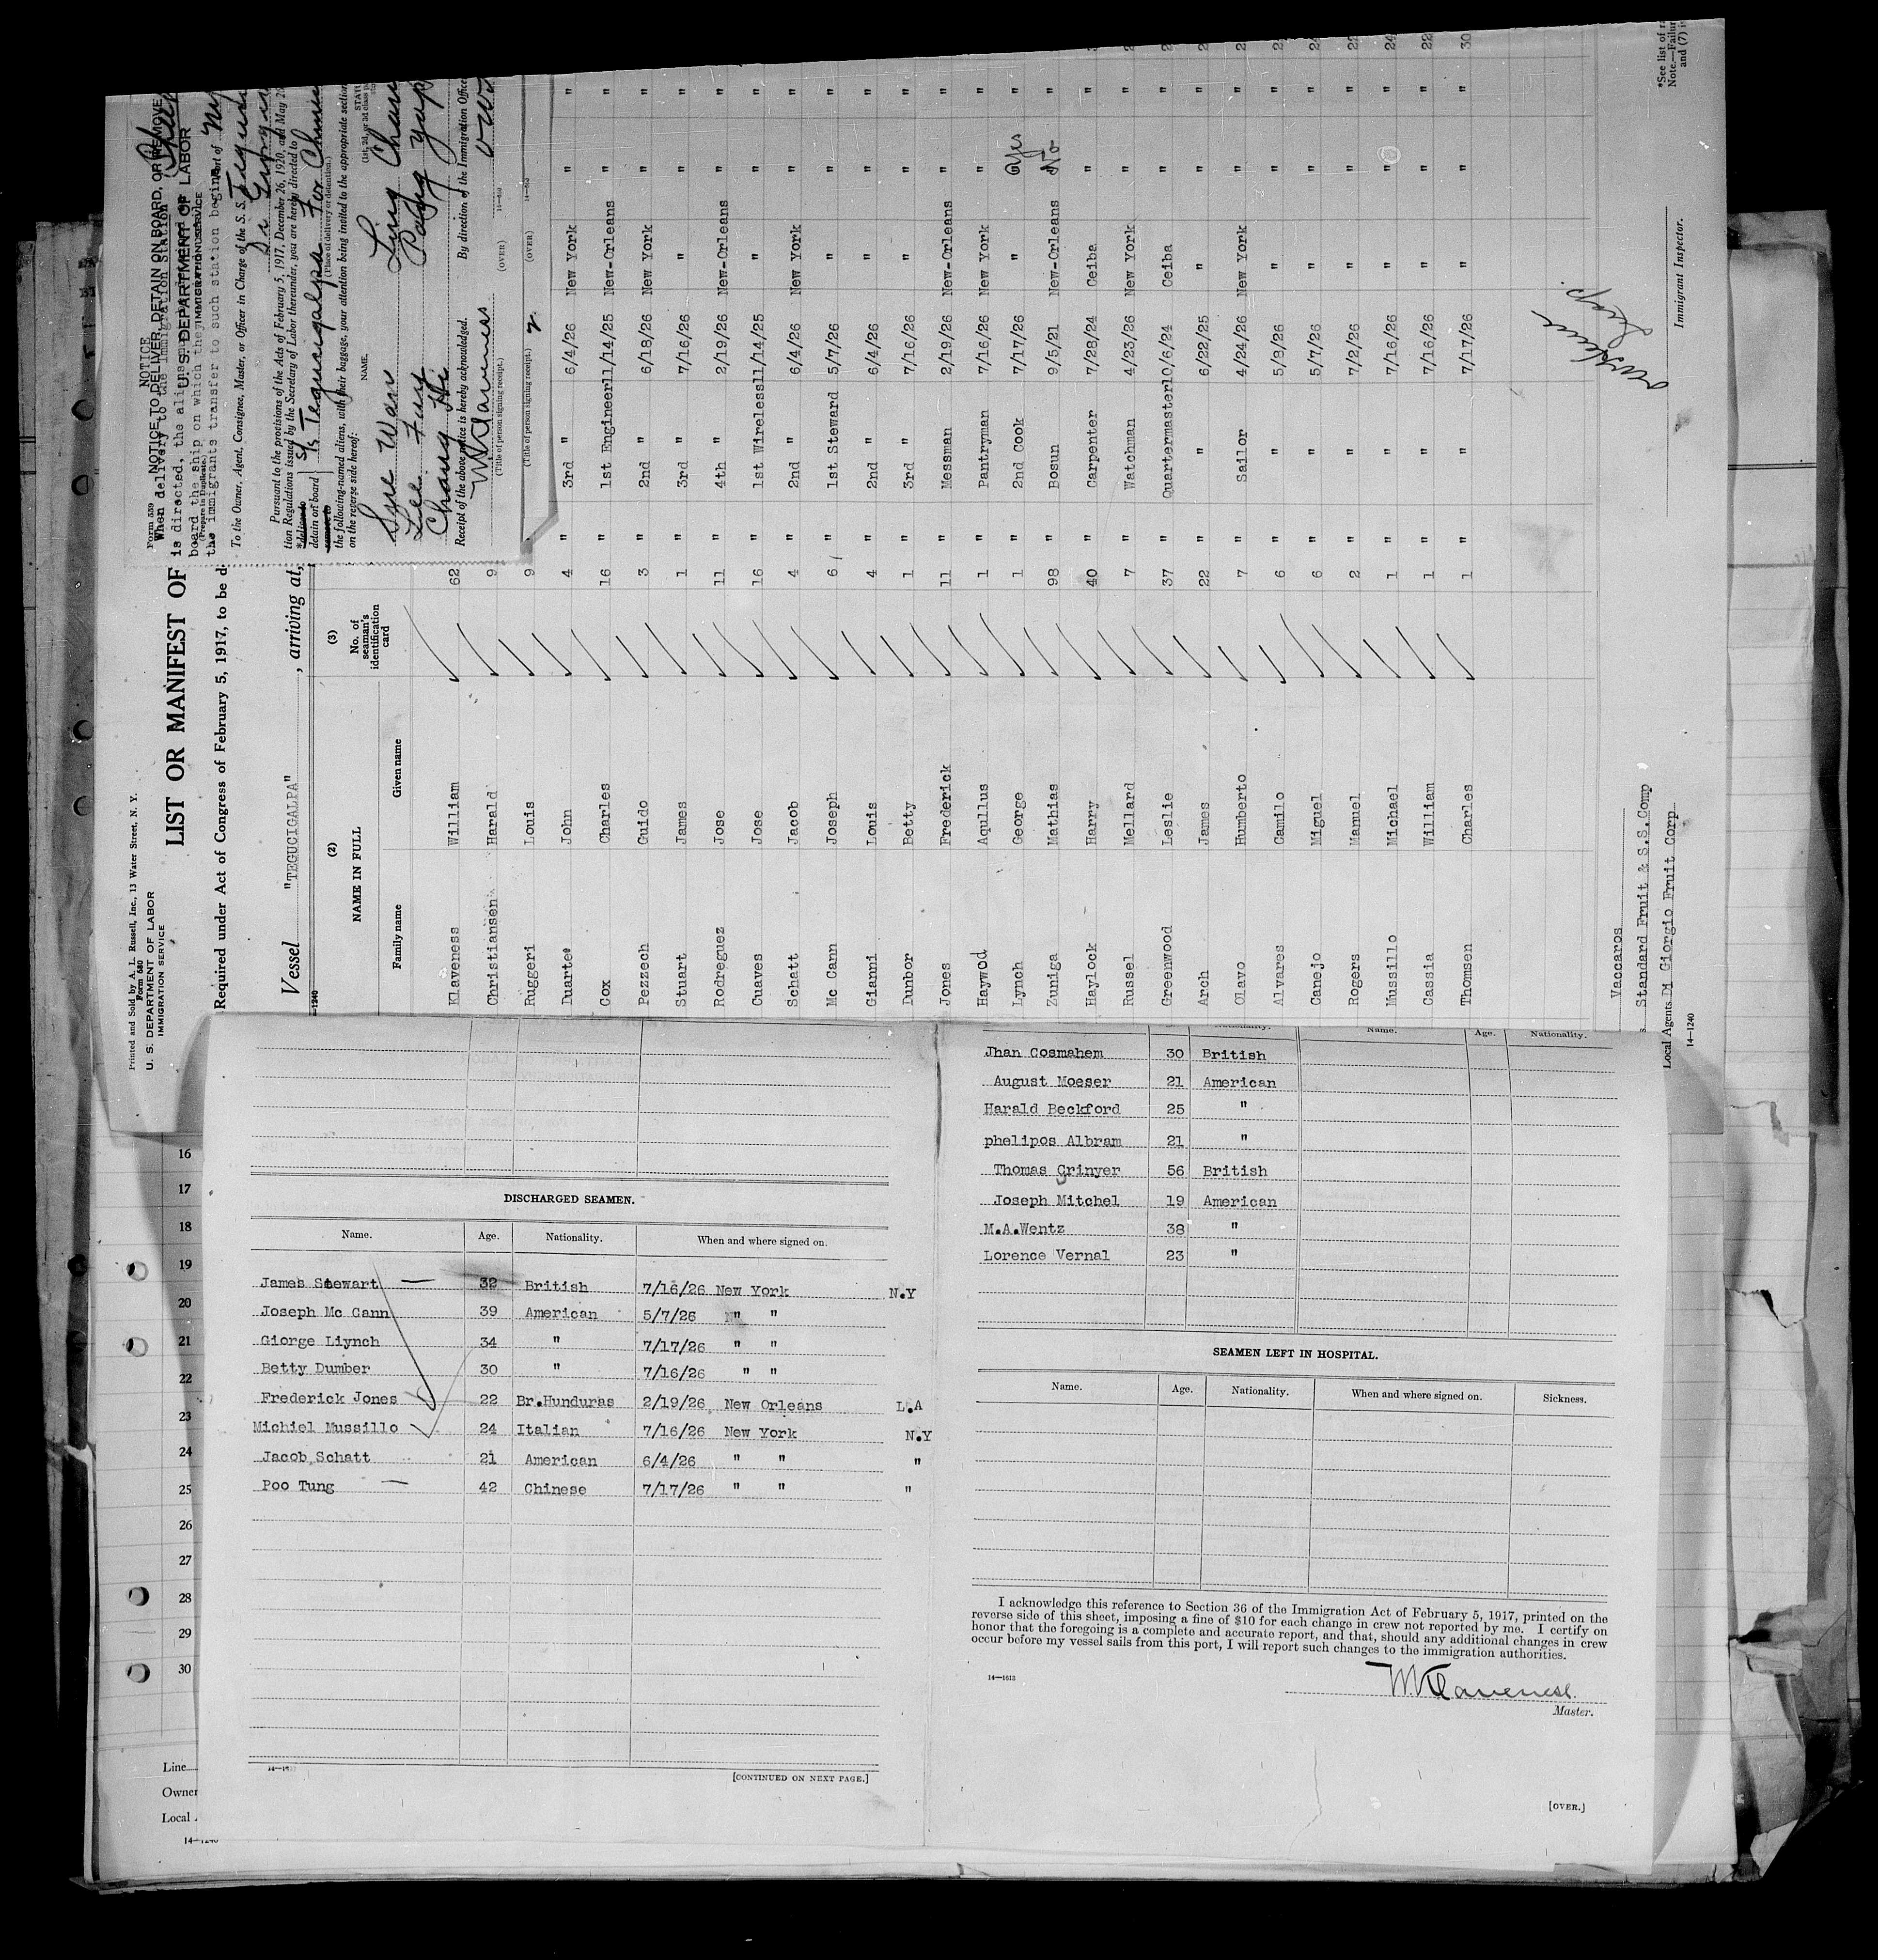 Printed and Sold by A. L. Russell, Inc., 13 Water Street, N. Y.
Form 680
U. S. DEPARTMENT OF LABOR
IMMIGRATION SERVICE
LIST OR MANIFEST OF
Required under Act of Congress of February 5, 1917, to be d
Vessel "TEGUCIGALPA" , arriving at,
14-1240
(2) (3)
NAME IN FULL No. of seaman's identification card
Family name Given name
Klaveness William 62
Christiansen Harald 9
Ruggeri Louis 9
Duartee John 4 " 3rd " 6/4/26 New York " "
Cox Charles 16 " 1st Engineer11/14/25 New-Orleans " "
Pezzech Guido 3 " 2nd " 6/18/26 New York " "
Stuart James 1 " 3rd " 7/16/26 " " "
Rodreguez Jose 11 " 4th " 2/19/26 New-Orleans " "
Cuaves Jose 16 " 1st Wireless11/14/25 " " "
Schatt Jacob 4 " 2nd " 6/4/26 New York " "
Mc Cann Joseph 6 " 1st Steward 5/7/26 " " "
Gianni Louis 4 " 2nd " 6/4/26 " " "
Dunbor Betty 1 " 3rd " 7/16/26 " " "
Jones Frederick 11 " Messman 2/19/26 New-Orleans " "
Haywod Aqullus 1 " Pantryman 7/16/26 New York " "
Lynch George 1 " 2nd Cook 7/17/26 " Yes "
Zuniga Mathias 98 " Bosun 9/5/21 New-Orleans No "
Haylock Harry 40 " Carpenter 7/28/24 Ceiba " "
Russel Mellard 7 " Watchman 4/23/26 New York " "
Greenwood Leslie 37 " Quartermaster10/6/24 Ceiba " "
Arch James 22 " " 6/22/25 " " "
Clavo Humberto 7 " Sailor 4/24/26 New York " "
Alvares Camilo 6 " " 5/8/26 " " "
Canejo Miguel 6 " " 5/7/26 " " " 24
Rogers Manuel 2 " " 7/2/26 " " " 22
Mussillo Michael 1 " " 7/16/26 " " " 24
Cassia William 1 " " 7/16/26 " " " 22
Thomsen Charles 1 " " 7/17/26 " " " 30
Vaccaros
Standard Fruit & S.S.Comp
Local Agents Di Giorgio Fruit Corp
14-1240
Immigrant Inspector.
*See list of ra
Note.—Failur
and (7) is
Form 539
NOTICE
NOTICE TO DELIVER, DETAIN ON BOARD, OR REMOVE
When delivery to the Immigration Station
is directed, the aliens
U. S. DEPARTMENT OF LABOR
board the ship on which they
IMMIGRATION SERVICE
(Prepare in Duplicate.)
the immigrants transfer to such station begins
Port of
To the Owner, Agent, Consignee, Master, or Officer in Charge of the S. S.
Pursuant to the provisions of the Acts of February 5, 1917, December 26, 1920, and May 2
tion Regulations issued by the Secretary of Labor thereunder, you are hereby directed to
*deliver to
detain on board S/s Tegucigalpa For
remove to
(Place of delivery or detention.)
the following-named aliens, with their baggage, your attention being invited to the appropriate section
on the reverse side hereof:
NAME.
Sze Wan Ling Chan
Lee Fung Paddy Yap
Chang He
Receipt of the above notice is hereby acknowledged. By direction of the Immigration Office
W Klaveness
(Title of person signing receipt.) (OVER) 14-512
(Title of person signing receipt.) (OVER) 14-512
16
17
18
19
20
21
22
23
24
25
26
27
28
29
30
Line
Owner
Local
DISCHARGED SEAMEN.
Name. Age. Nationality. When and where signed on.
James Stewart 32 British 7/16/26 New York N.Y
Joseph Mc Cann 39 American 5/7/26 " "
Giorge Liynch 34 " 7/17/26 " "
Betty Dumber 30 " 7/16/26 " "
Frederick Jones 22 Br.Hunduras 2/19/26 New Orleans L.A
Michiel Mussillo 24 Italian 7/16/26 New York N.Y
Jacob Schatt 21 American 6/4/26 " " "
Poo Tung 42 Chinese 7/17/26 " " "
[CONTINUED ON NEXT PAGE.]
Name. Age. Nationality.
Jhan Cosmahem 30 British
August Moeser 21 American
Harald Beckford 25 "
phelipos Albram 21 "
Thomas Grinyer 56 British
Joseph Mitchel 19 American
M.A.Wentz 38 "
Lorence Vernal 23 "
SEAMEN LEFT IN HOSPITAL.
Name. Age. Nationality. When and where signed on. Sickness.
I acknowledge this reference to Section 36 of the Immigration Act of February 5, 1917, printed on the
reverse side of this sheet, imposing a fine of $10 for each change in crew not reported by me. I certify on
honor that the foregoing is a complete and accurate report, and that, should any additional changes in crew
occur before my vessel sails from this port, I will report such changes to the immigration authorities.
14-1613
W Klaveness
Master.
[OVER.]